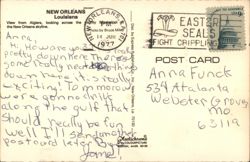 NEW ORLEANS
Louisiana
View from Algiers, looking across the
the New Orleans skyline.
Photo by Bruce
NEW ORLEANS
PM
14 JUL
1977
EASTER
SEALS
FIGHT CRIPPLING
POST CARD
Anna,
Hi How are you? It's
pretty down here. There's
some really neat things
down here, it's really
exciting. Tomorrow
were gonna drive
along the gulf. That
should really be fun
well I'll send another
postcard later. Bye
Jane!
Anna Funck
534 Atalanta
Webster Groves,
Mo.
63119